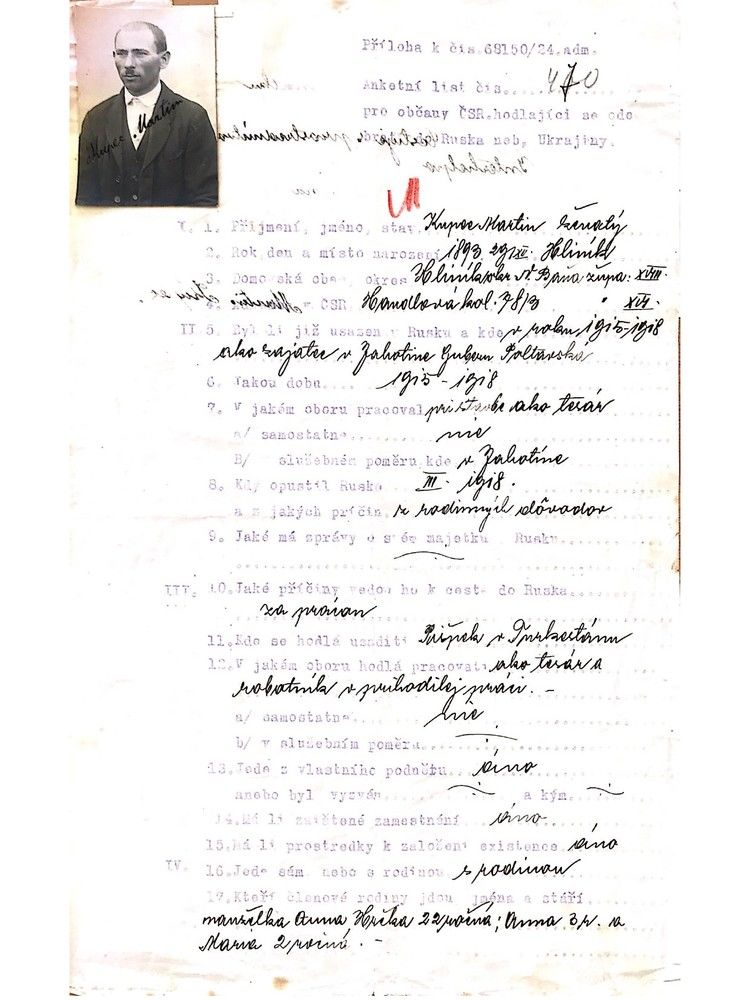 Příloha k čís.68150/24.adm.
Anketní list čís. 470
pro občany ČSR.hodlající se ode
Ruska neb, Ukrajiny.
Kupec Martin
I. 1. Přijmení, jméno, stav Kupec Martin ženatý
2. Rok,den a místo narození 1893 29/XII. Hliník
3. Domovská obec, okres Hliník okr N. Baňa župa: XVIII.
v ČSR. Handlová kol. 78/3 " XVI.
II 5. Byl li již usazen v Rusku a kde v roku 1915-1918
ako zajatec v Jahotine Gubern Poltavská
6. Jakou dobu.... 1915 - 1918
7. V jakém oboru pracoval pri stavbe ako tesár
a/ samostatně... nie
B/ služebném poměru kde v Jahotine
8. Kdy opustil Rusko III. 1918.
a z jakých príčin z rodinných dôvodov
9. Jaké má správy o svém majetku Rusku...
III. 10.Jaké příčiny vedou ho k cestě do Ruska...
za prácou
11.Kde se hodlá usaditi Pišpek v Turkestánu
12.V jakém oboru hodlá pracovati ako tesár a
robotník v prihodilej práci. -
a/ samostatně... nie
b/ v služebním poměru...
13.Jede z vlastního podnětu áno
anebo byl vyzván a kým.
14.Má li zajištené zamestnání áno
15.Má li prostredky k založení existence áno
IV. 16.Jede sám nebo s rodinou s rodinou
17.Kteří členové rodiny jdou jména a stáří
manželka Anna Hrčka 22 ročná; Anna 3 r. a
Maria 2 ročná. -